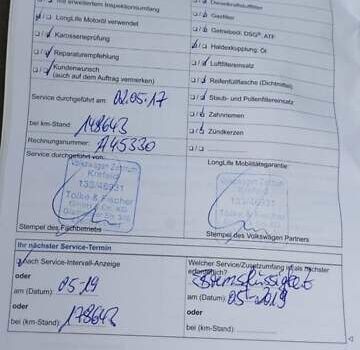 mit erweitertem Inspektionsumfang
LongLife Motoröl verwendet
Karosserieprüfung
Reparaturempfehlung
Kundenwunsch
(auch auf dem Auftrag vermerken)
Dieselkraftstofffilter
Gasfilter
Getriebeöl: DSG®, ATF
Haldexkupplung: Öl
Luftfiltereinsatz
Reifenfüllflasche (Dichtmittel)
Staub- und Pollenfiltereinsatz
Zahnriemen
Zündkerzen
Service durchgeführt am: 02.05.17
bei km-Stand: 148643
Rechnungsnummer: A45330
Service durchgeführt von:
LongLife Mobilitätsgarantie:
Volkswagen Zentrum
Krefeld
133/46931
Tölke & Fischer
Volkswagen Zentrum
Krefeld
133/46931
Tölke & Fischer
Stempel des Fachbetriebs
Stempel des Volkswagen Partners
Ihr nächster Service-Termin
nach Service-Intervall-Anzeige
oder
am (Datum): 05-19
oder
bei (km-Stand): 178643
Welcher Service/Zusatzumfang ist als nächster
erforderlich?
Bremsflüssigkeit
am (Datum): 05-2019
oder
bei (km-Stand):